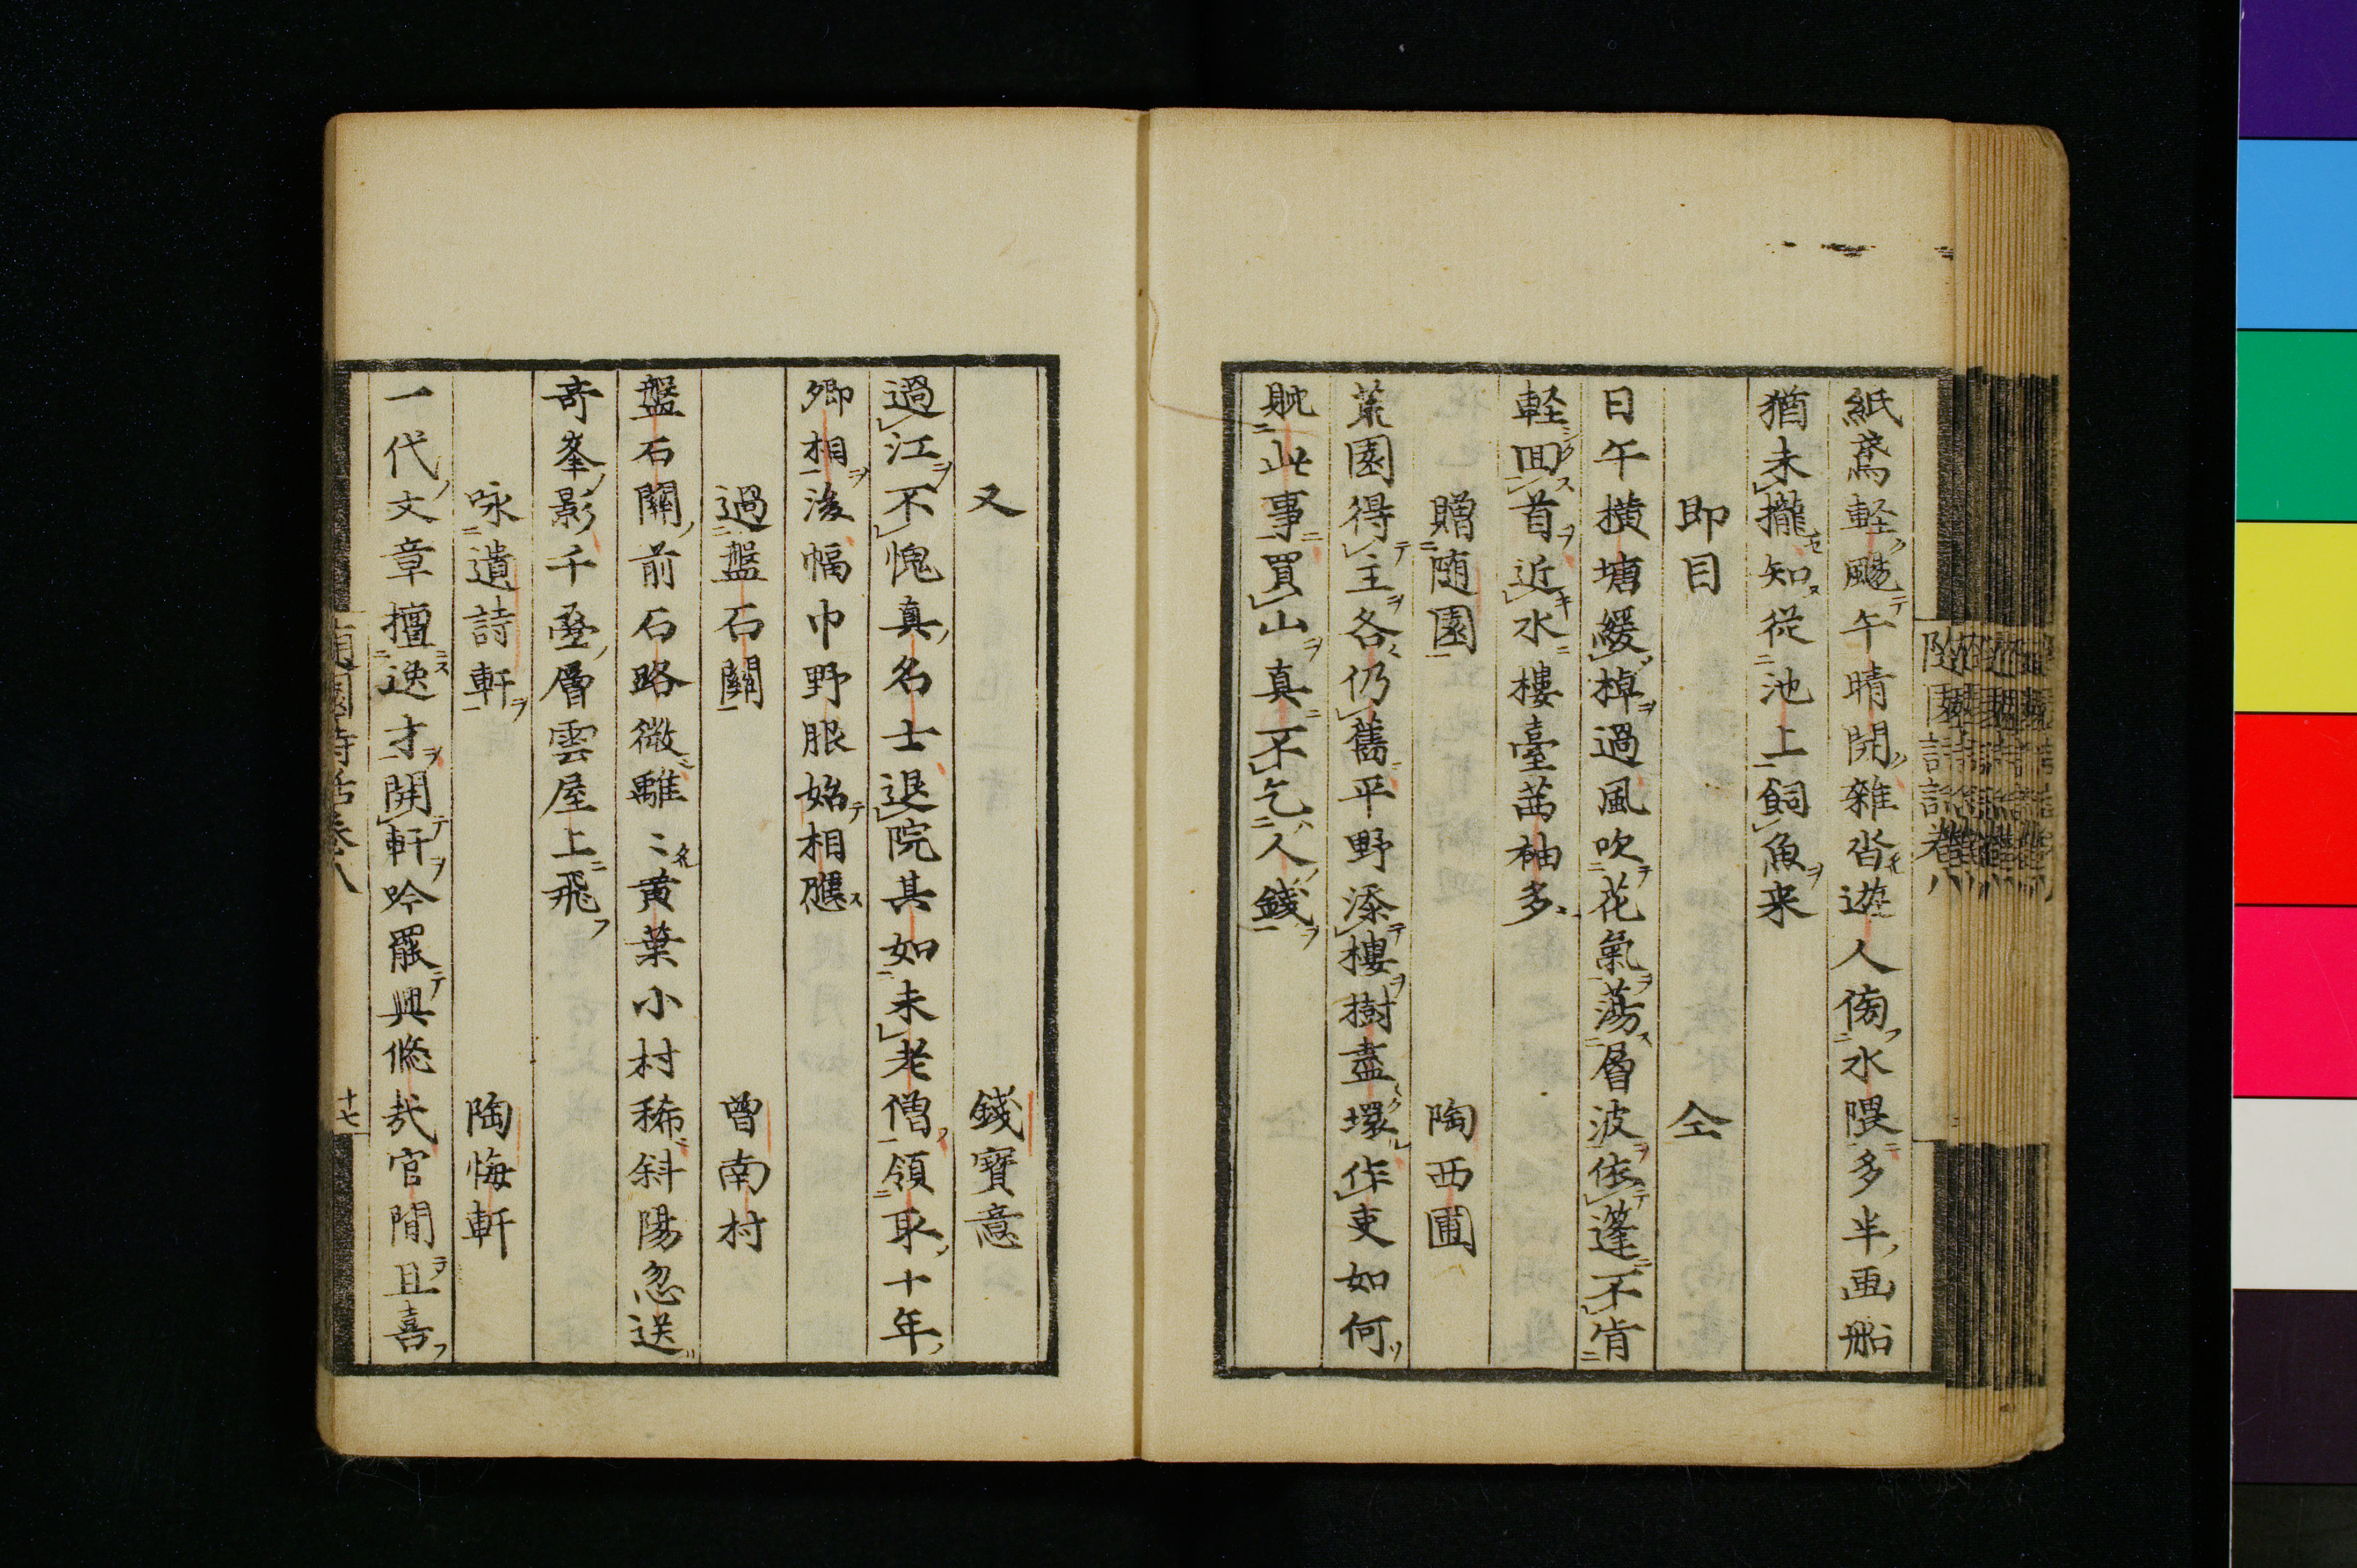 紙鳶軽颺午晴開雜沓遊人傍水隈多半画船
猶未攏知從池上飼魚来
即目 仝
日午横塘緩棹過風吹花氣蕩層波依篷不肯
軽回首近水樓臺茜袖多
贈随園 陶西圃
荒園得主各仍舊平野添樓樹盡環作吏如何
貺此事買山真不乞人錢
又 錢寶意
過江不愧真名士退院其如未老僧領取十年
卿相後幅巾野服始相應
過盤石關 曾南村
盤石關前石路微離〻黄葉小村稀斜陽忽送
奇峯影千疊層雲屋上飛
咏遺詩軒 陶悔軒
一代文章擅逸才開軒吟罷興悠哉官閒且喜
随園詩話 卷八
十七